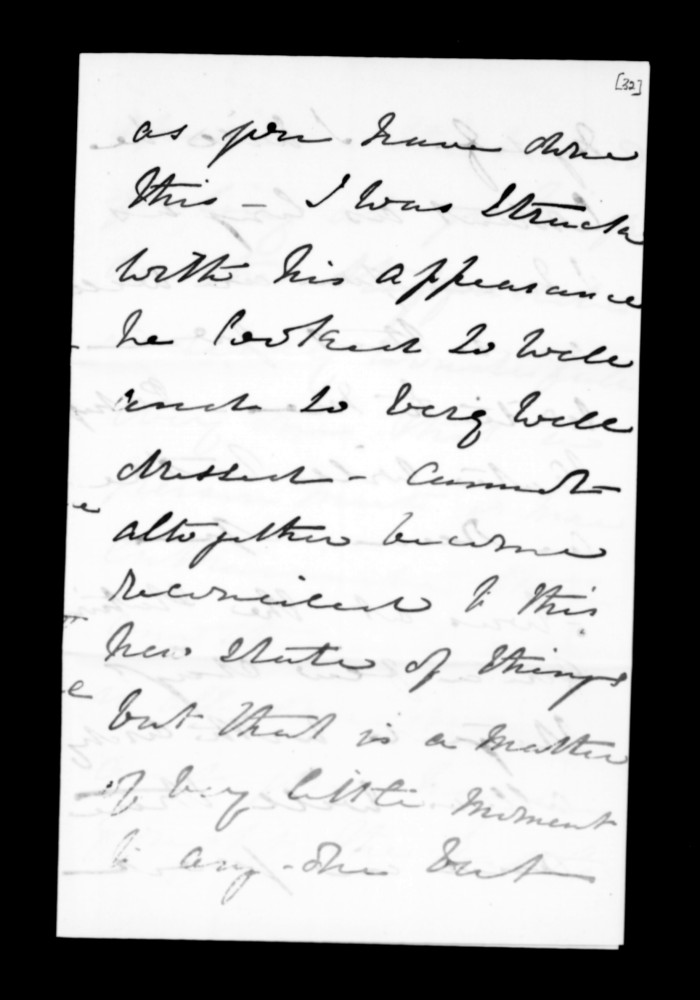 [32]
as you have done
this - I was struck
with his appearance
he looked so well
and so very well
dressed - cannot
altogether become
reconciled to this
new state of things
but that is a matter
of very little moment
to any-one but